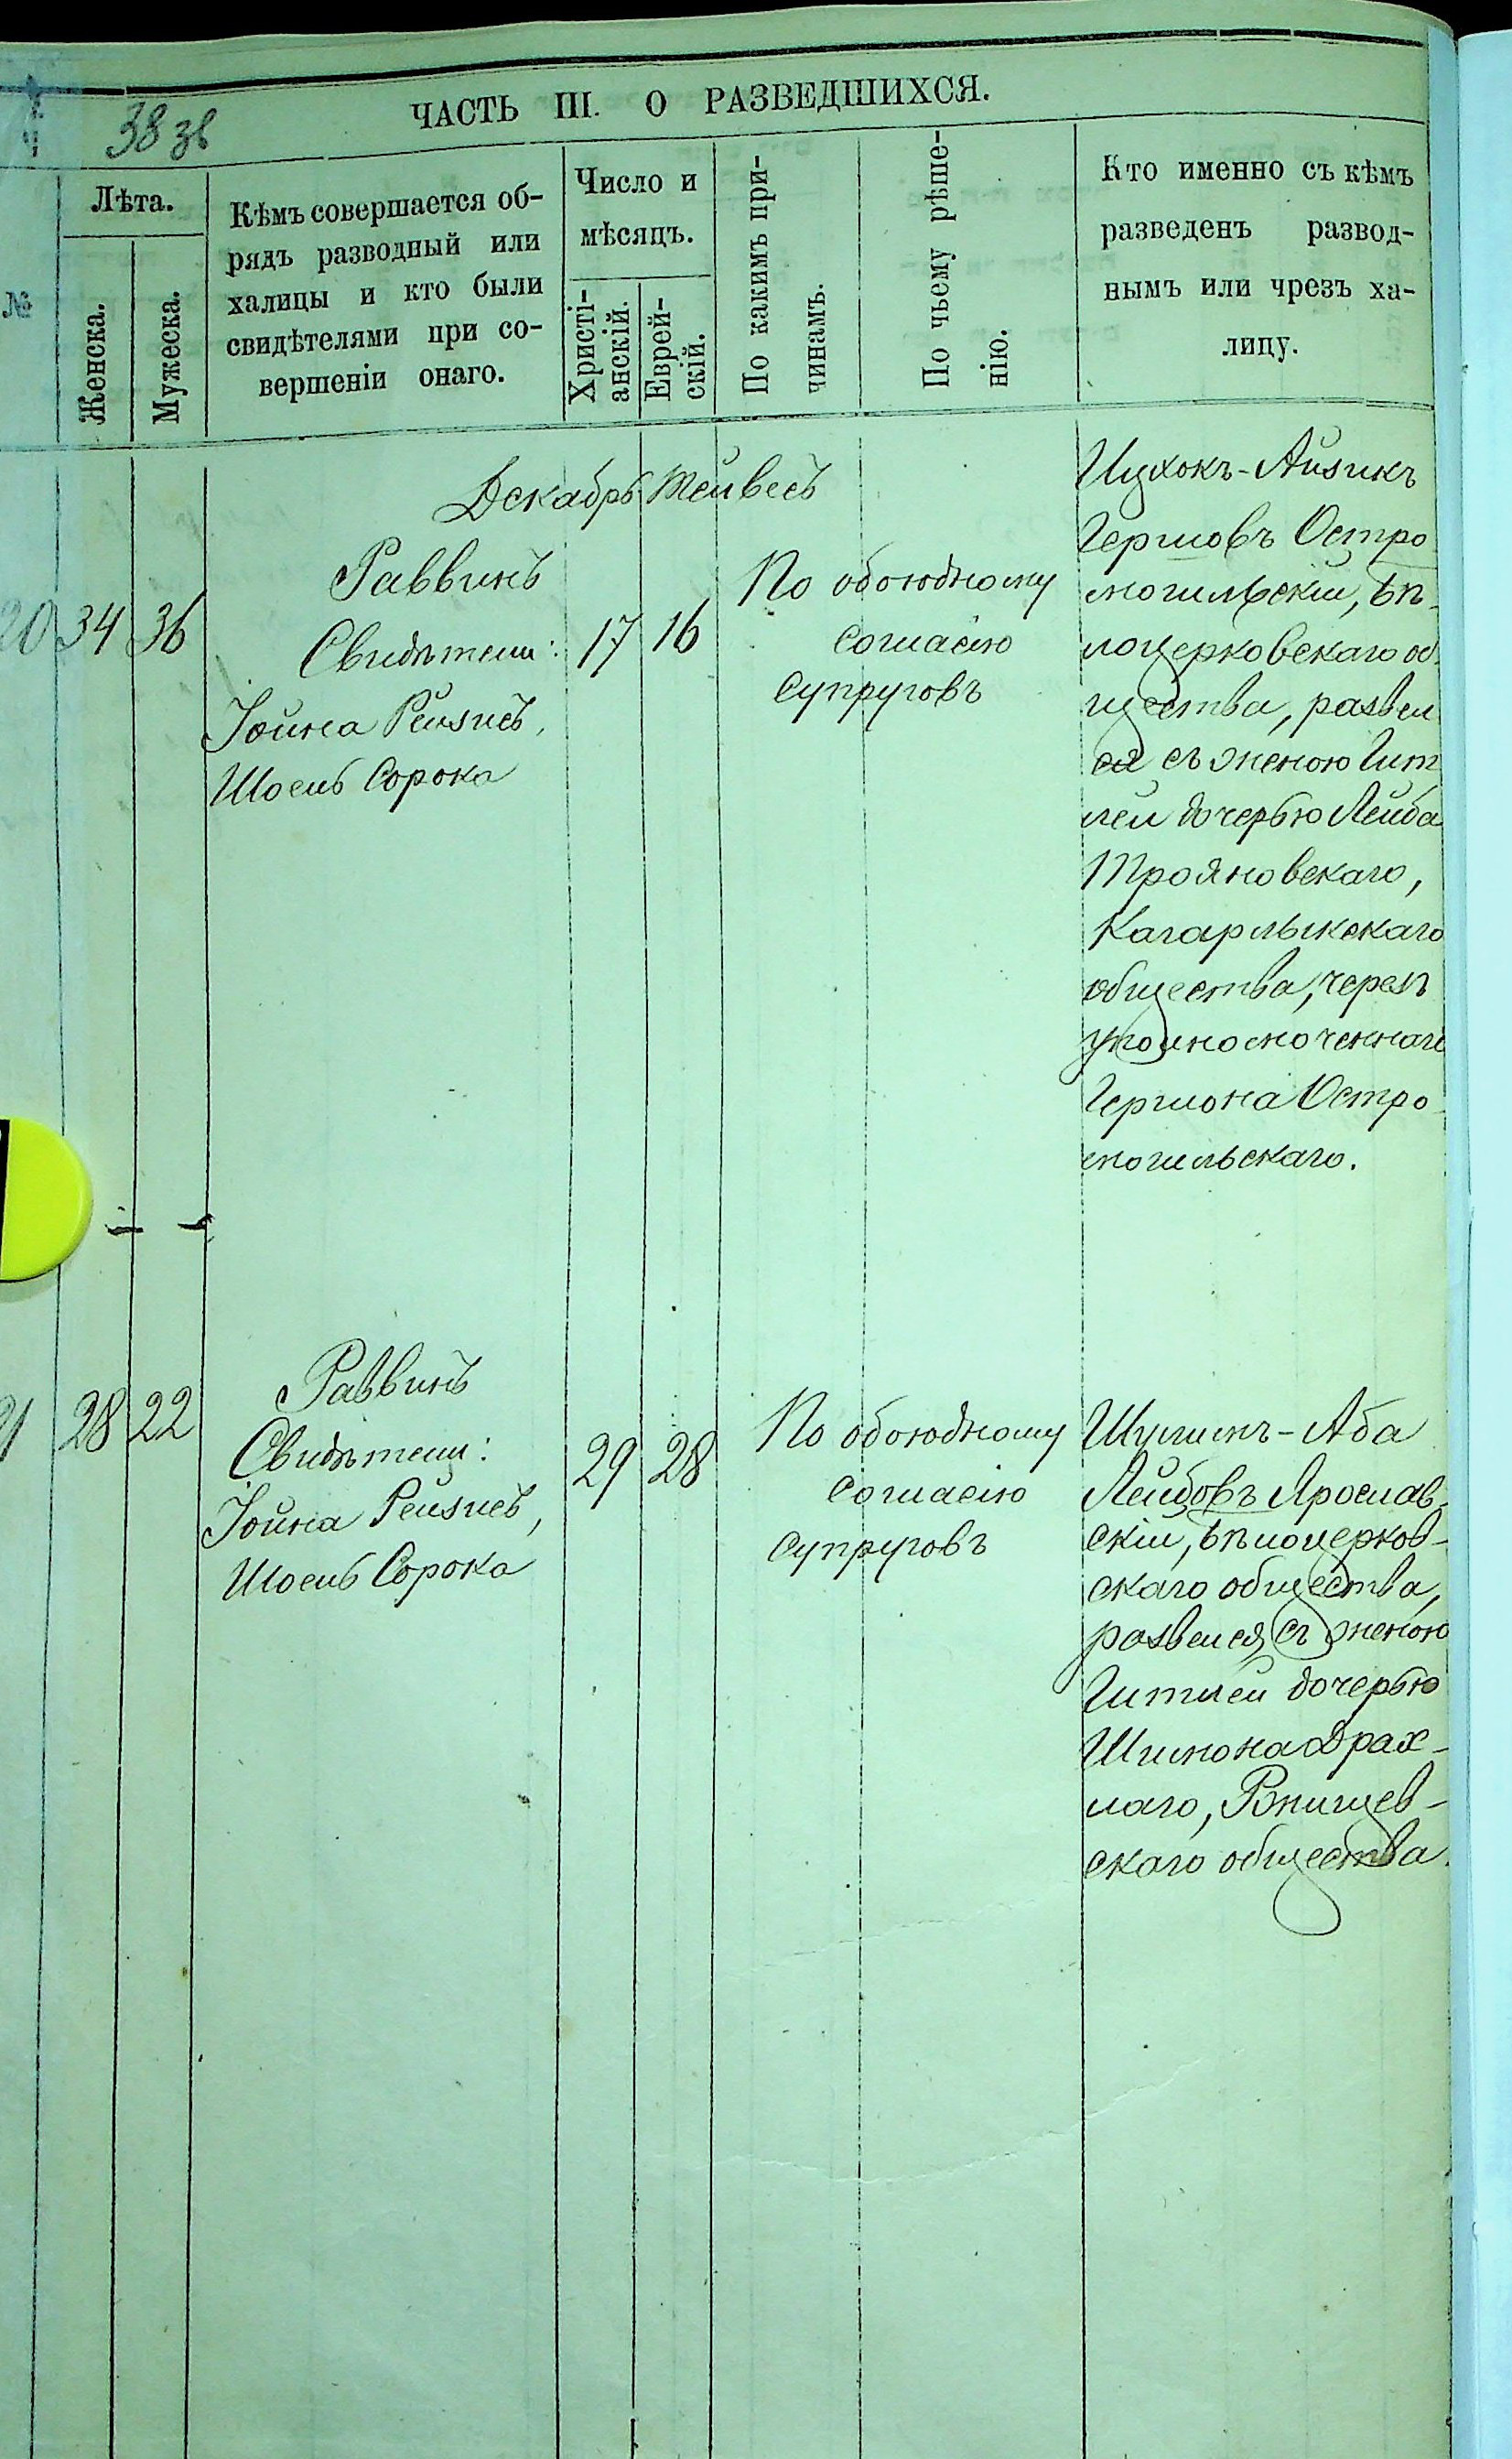 38 зв
ЧАСТЬ III. О РАЗВЕДШИХСЯ.
№
Лѣта.
Женска.
Мужеска.
Кѣмъ совершается об-
рядъ разводный или
халицы и кто были
свидѣтелями при со-
вершеніи онаго.
Число и
мѣсяцъ.
Христі-
анскій.
Еврей-
скій.
По какимъ при-
чинамъ.
По чьему рѣше-
нію.
Кто именно съ кѣмъ
разведенъ развод-
нымъ или чрезъ ха-
лицу.
Декабрь Тейвесъ
20
34
36
Раввинъ
Свидѣтели:
Іойна Рейзисъ,
Шоель Сорока
17
16
По обоюдному
согласію
супруговъ
Ицхокъ-Айзикъ
Гершовъ Остро
могильскій, Бѣ-
лоцерковскаго об
щества, развел
ся съ женою Гит
лей дочерью Лейба
Трояновскаго,
Кагарлыкскаго
общества, черезъ
уполномоченнаго
Гершона Остро
могильскаго.
21
28
22
Раввинъ
Свидѣтели:
Іойна Рейзисъ,
Шоель Сорока
29
28
По обоюдному
согласію
супруговъ
Шулимъ-Аба
Лейбовъ Ярослав-
скій, Бѣлоцерков-
скаго общества,
развелся съ женою
Гитлей дочерью
Шимона Драх-
лаго, Ржищев-
скаго общества.